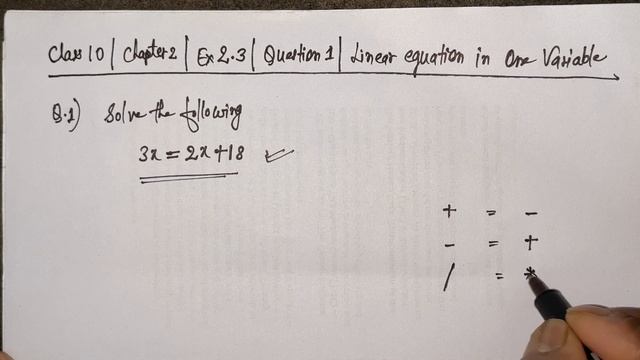 Class 10 | Chapter 2 | Ex 2.3 | Question 1 | Linear equation in One Variable
Q.1) Solve the following
3x = 2x + 18
+ = -
- = +
/ = *